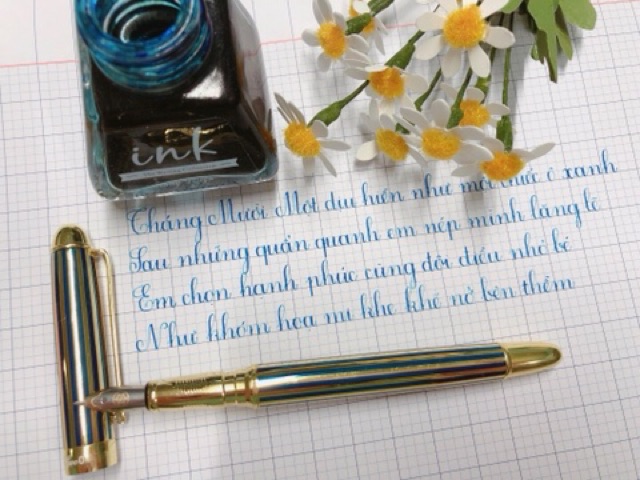 ink
Tháng Mười Một dịu hiền như một ô xanh
Sau những quẩn quanh em nép mình lặng lẽ
Em chọn hạnh phúc cùng đôi điều nhỏ bé
Như khóm hoa nụ khe khẽ nở bên thềm